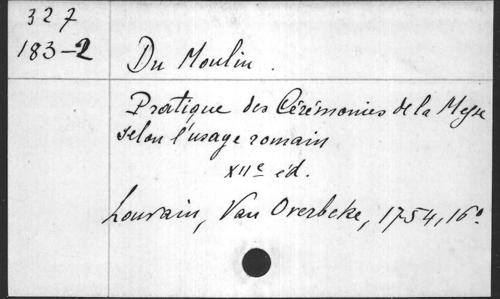 327
183-2
Du Moulin.
Pratique des Cérémonies de la Messe
selon l'usage romain
XIIe éd.
Louvain, Van Overbeke, 1754, 16°